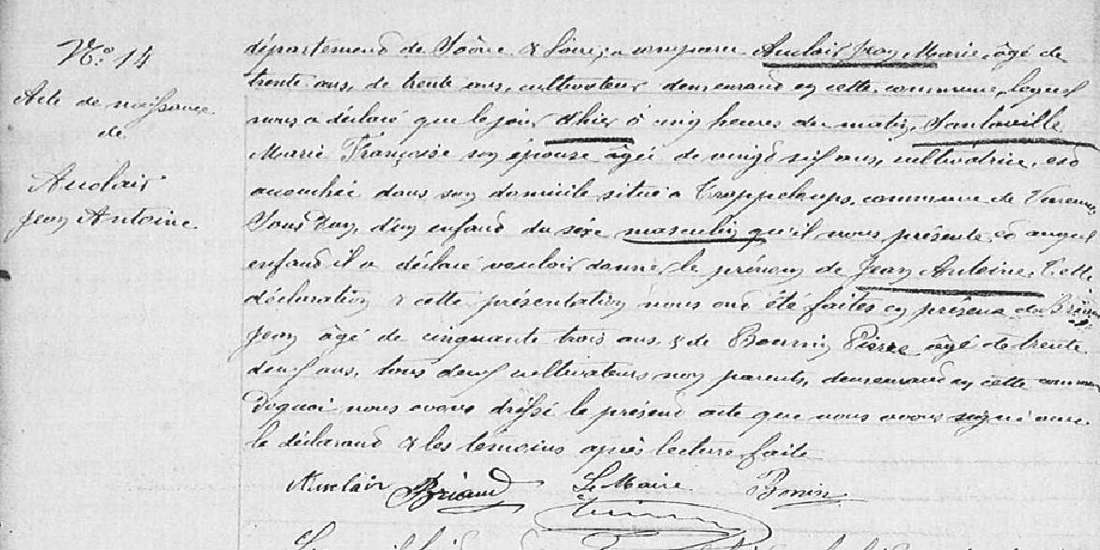 N° 14
Acte de naissance
de
Auclair
Jean Antoine
département de Saône & Loire, a comparu Auclair Jean Marie, âgé de
trente ans, de trente ans, cultivateur demeurant en cette commune, lequel
nous a déclaré que le jour d'hier à cinq heures du matin,
Marie Françoise son épouse âgée de vingt six ans, cultivatrice, est
accouchée dans son domicile situé à Trappeloups, commune de Varennes
sous Dun, d'un enfant du sexe masculin qu'il nous présente, et auquel
enfant il a déclaré vouloir donner le prénom de Jean Antoine. Cette
déclaration & cette présentation nous ont été faites en présence de Briand
Jean âgé de cinquante trois ans & de Pierre âgé de trente
deux ans, tous deux cultivateurs non parents, demeurant en cette commune
De quoi nous avons dressé le présent acte que nous avons signé avec
le déclarant & les temoins après lecture faite
Auclair Briand Le Maire Bonin